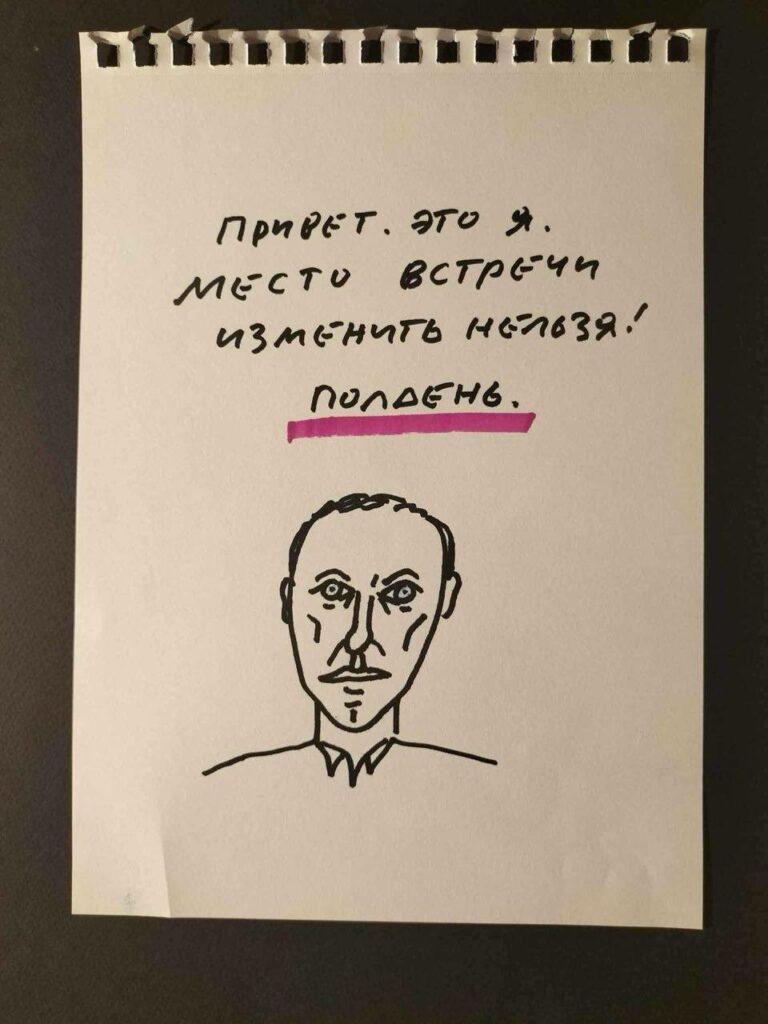 ПРИВЕТ. ЭТО Я.
МЕСТО ВСТРЕЧИ
ИЗМЕНИТЬ НЕЛЬЗЯ!
ПОЛДЕНЬ.